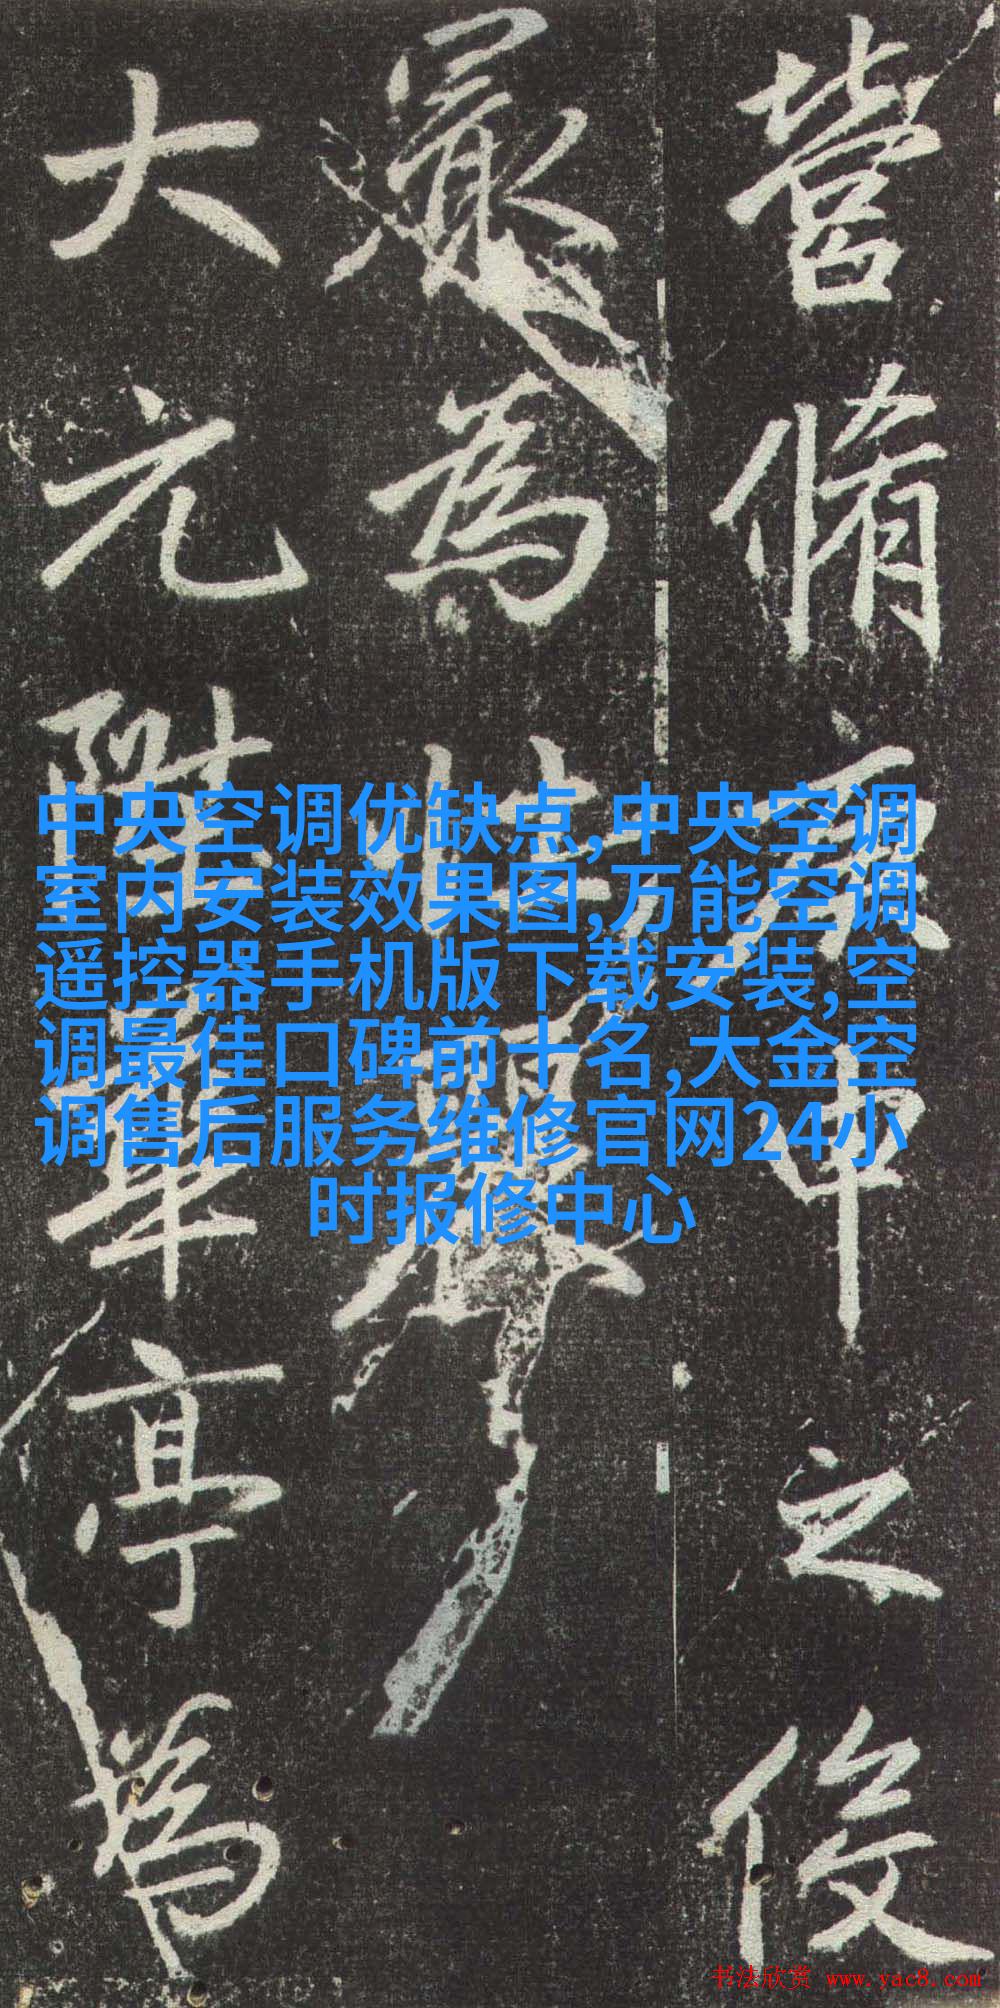 營脩中之
為
大元華亭為
中央空调优缺点,中央空调
室内安装效果图,万能空调
遥控器手机版下载安装,空
调最佳口碑前十名,大金空
调售后服务维修官网24小
时报修中心
书法欣赏 www.yac8.com